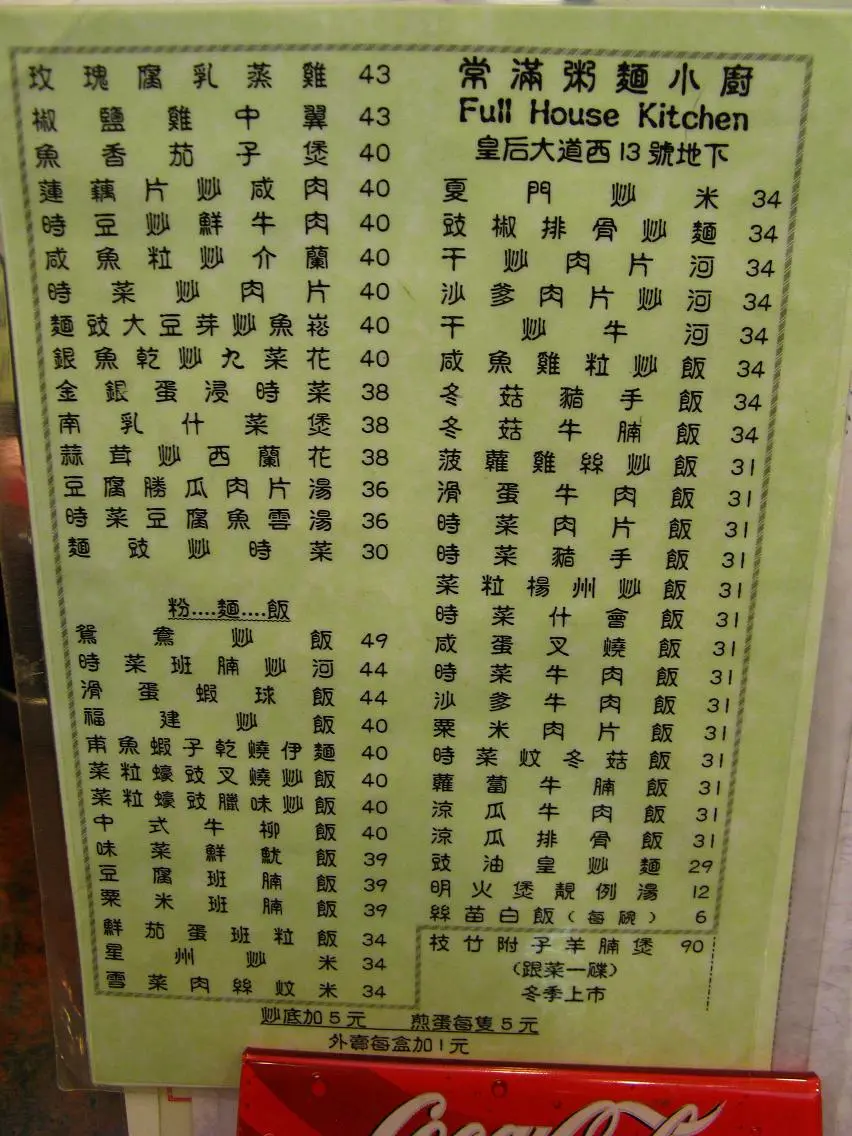 玫瑰腐乳蒸雞 43
椒鹽雞中翼 43
魚香茄子煲 40
蓮藕片炒咸肉 40
時豆炒鮮牛肉 40
咸魚粒炒介蘭 40
時菜炒肉片 40
麵豉大豆芽炒魚崧 40
銀魚乾炒九菜花 40
金銀蛋浸時菜 38
南乳什菜煲 38
蒜茸炒西蘭花 38
豆腐勝瓜肉片湯 36
時菜豆腐魚雲湯 36
麵豉炒時菜 30
粉....麵....飯
鴛鴦炒飯 49
時菜班腩炒河 44
滑蛋蝦球飯 44
福建炒飯 40
甫魚蝦子乾燒伊麵 40
菜粒蠔豉叉燒炒飯 40
菜粒蠔豉臘味炒飯 40
中式牛柳飯 40
味菜鮮魷飯 39
豆腐班腩飯 39
粟米班腩飯 39
鮮茄蛋班粒飯 34
星州炒米 34
雪菜肉絲炆米 34
常滿粥麵小廚
Full House Kitchen
皇后大道西13號地下
夏門炒米 34
豉椒排骨炒麵 34
干炒肉片河 34
沙爹肉片炒河 34
干炒牛河 34
咸魚雞粒炒飯 34
冬菇豬手飯 34
冬菇牛腩飯 34
菠蘿雞絲炒飯 31
滑蛋牛肉飯 31
時菜肉片飯 31
時菜豬手飯 31
菜粒揚州炒飯 31
時菜什會飯 31
咸蛋叉燒飯 31
時菜牛肉飯 31
沙爹牛肉飯 31
粟米肉片飯 31
時菜炆冬菇飯 31
蘿蔔牛腩飯 31
涼瓜牛肉飯 31
涼瓜排骨飯 31
豉油皇炒麵 29
明火煲靚例湯 12
絲苗白飯(每碗) 6
枝竹附子羊腩煲 90
(跟菜一碟)
冬季上市
炒底加5元 煎蛋每隻5元
外賣每盒加1元
Coca-Cola